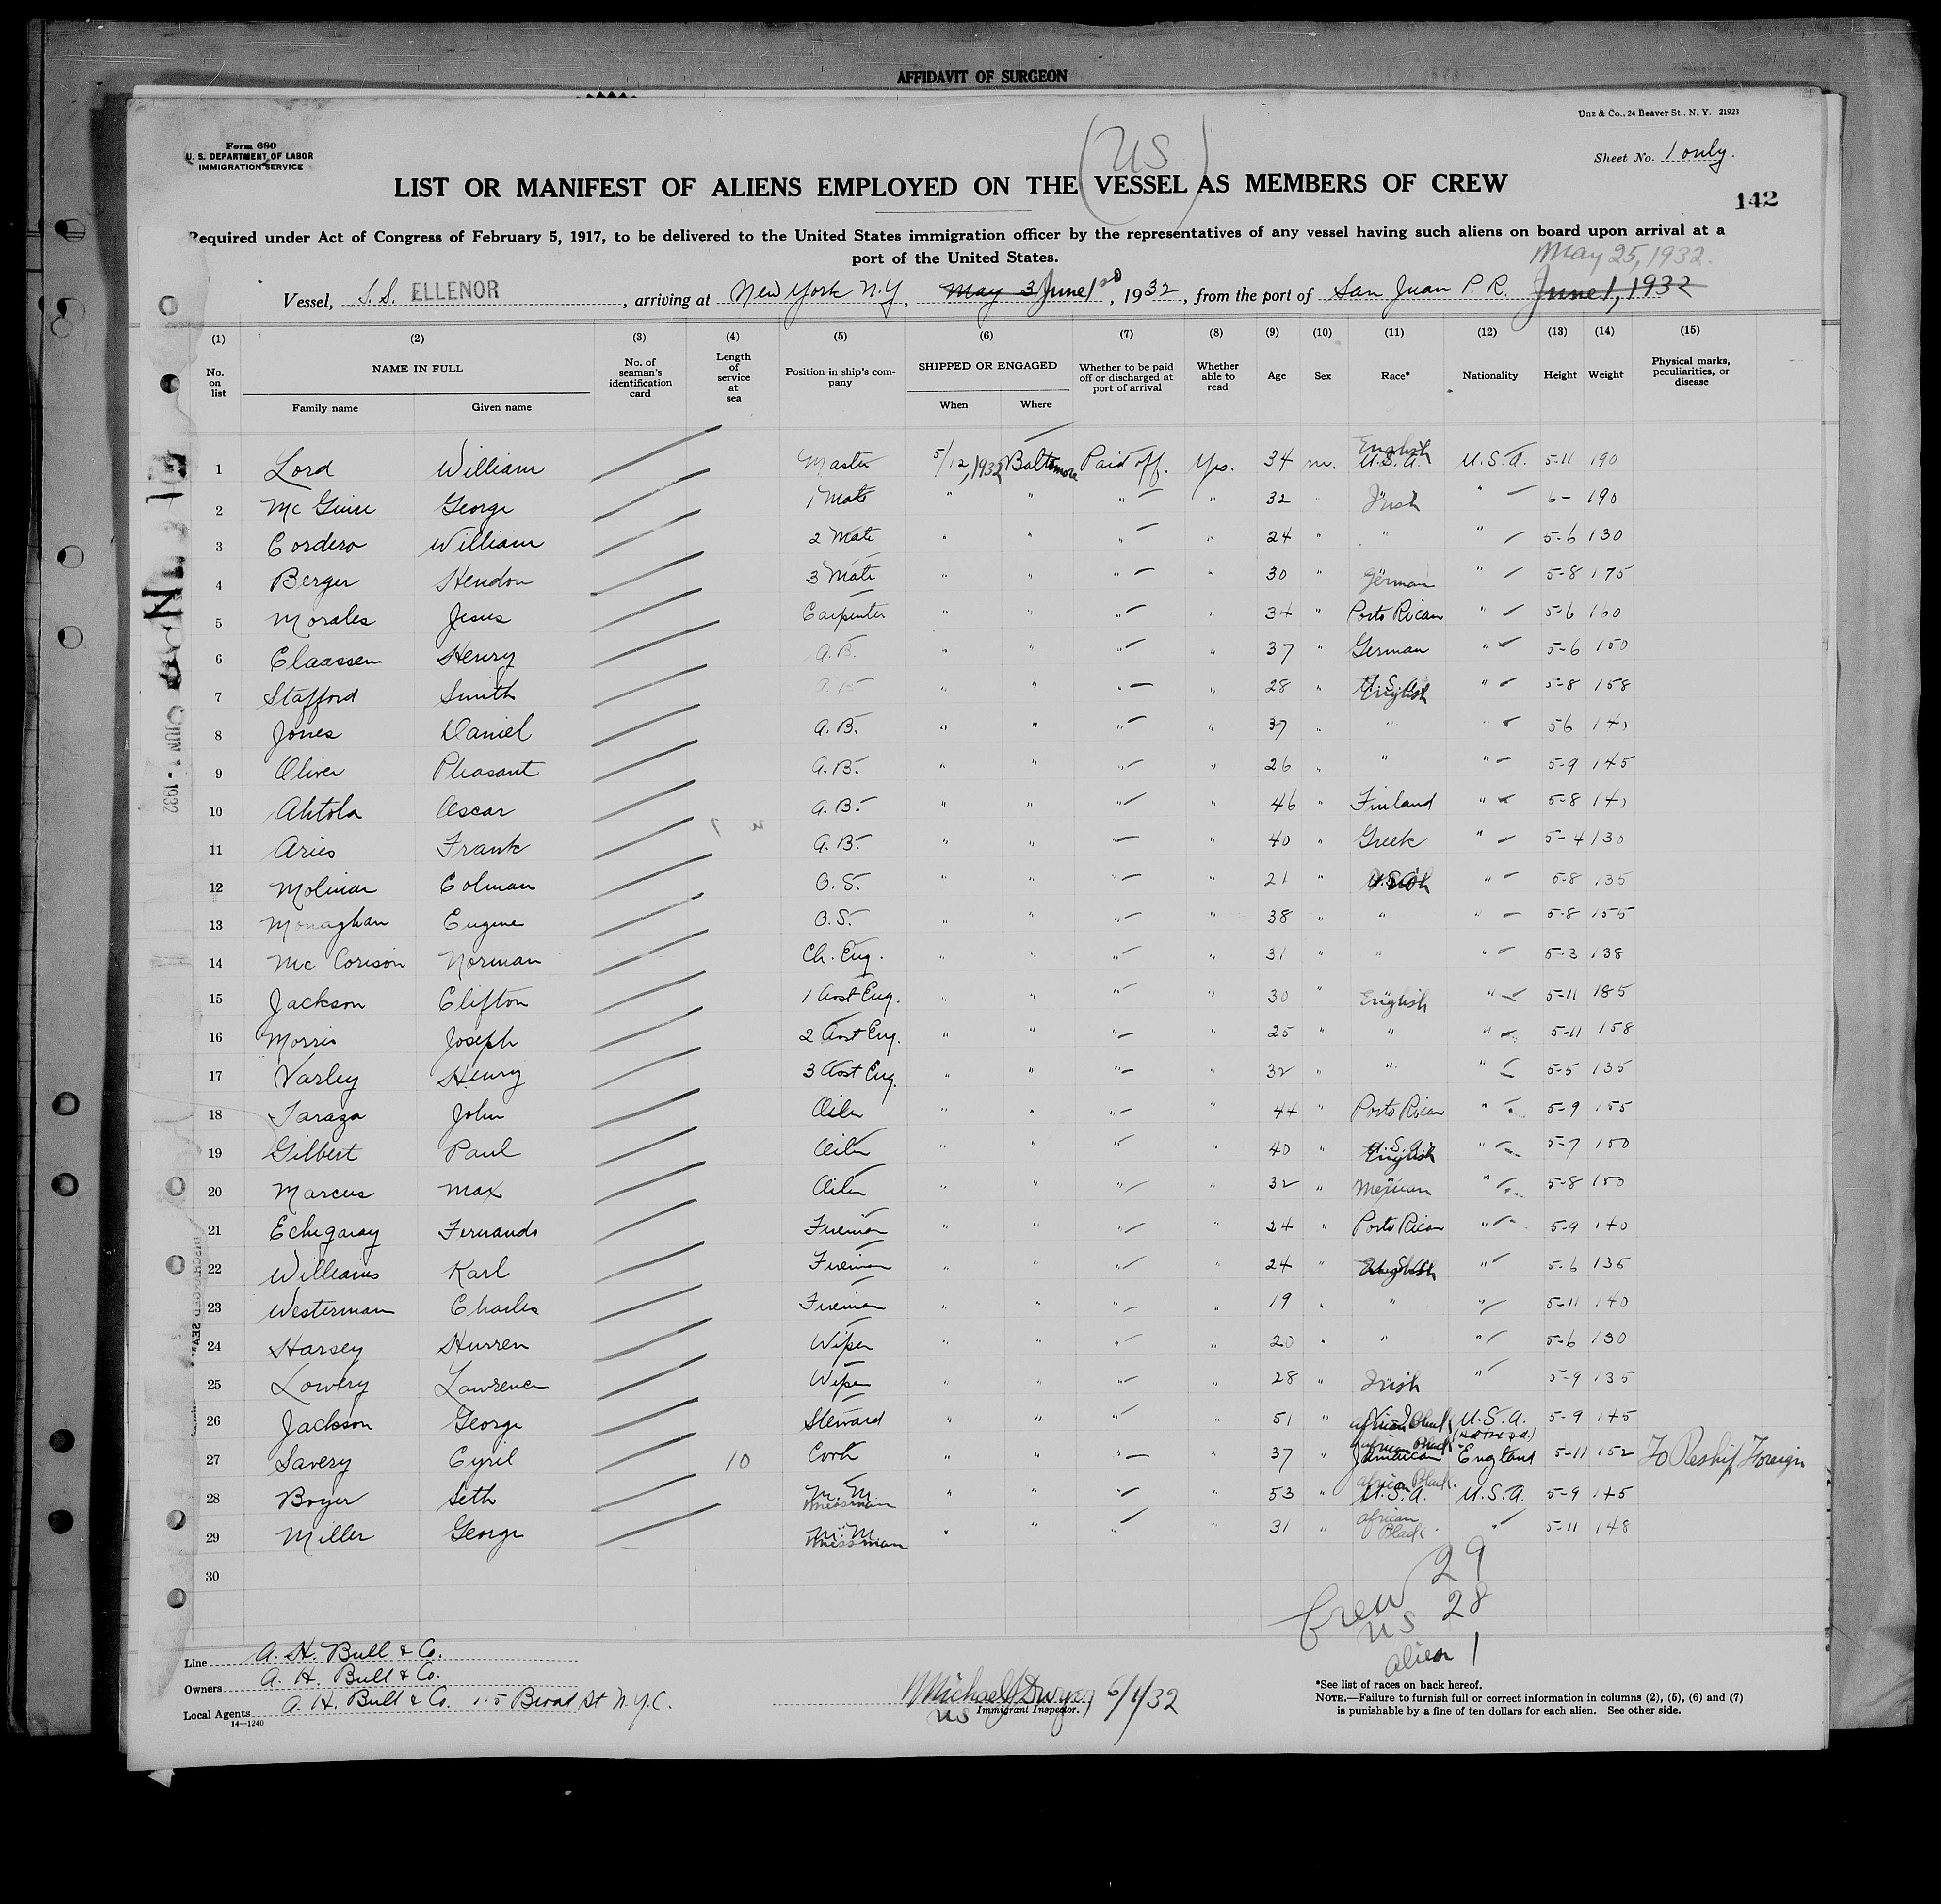 AFFIDAVIT OF SURGEON
Unz & Co., 24 Beaver St., N. Y. 21923
Form 680
U. S. DEPARTMENT OF LABOR
IMMIGRATION SERVICE
(US)
Sheet No. 1 only.
LIST OR MANIFEST OF ALIENS EMPLOYED ON THE VESSEL AS MEMBERS OF CREW
142
Required under Act of Congress of February 5, 1917, to be delivered to the United States immigration officer by the representatives of any vessel having such aliens on board upon arrival at a
port of the United States.
May 25, 1932.
Vessel, S.S. ELLENOR, arriving at New York N.Y., May 3 June 1st, 1932, from the port of San Juan P.R. June 1, 1932
(1) (2) (3) (4) (5) (6) (7) (8) (9) (10) (11) (12) (13) (14) (15)
No. on list NAME IN FULL Family name Given name No. of seaman's identification card Length of service at sea Position in ship's company SHIPPED OR ENGAGED When Where Whether to be paid off or discharged at port of arrival Whether able to read Age Sex Race* Nationality Height Weight Physical marks, peculiarities, or disease
1 Lord William Master 5/12, 1932 Baltimore Paid off. Yes. 34 m. U.S.A. English U.S.A. 5-11 190
2 Mc Guire George 1 Mate " " " " 32 " Irish " 6- 190
3 Cordero William 2 Mate " " " " 24 " " " 5-6 130
4 Berger Hendon 3 Mate " " " " 30 " German " 5-8 175
5 Morales Jesus Carpenter " " " " 34 " Porto Rican " 5-6 160
6 Claassen Henry A.B. " " " " 37 " German " 5-6 150
7 Stafford Smith A.B. " " " " 28 " U.S.A. English " 5-8 158
8 Jones Daniel A.B. " " " " 37 " " " 5 6 140
9 Oliver Pleasant A.B. " " " " 26 " " " 5-9 145
10 Ahtola Oscar A.B. " " " " 46 " Finland " 5-8 140
11 Aries Frank A.B. " " " " 40 " Greek " 5-4 130
12 Molinar Colman O.S. " " " " 21 " Irish " 5-8 135
13 Monaghan Eugene O.S. " " " " 38 " " " 5-8 155
14 Mc Corison Norman Ch. Eng. " " " " 31 " " " 5-3 138
15 Jackson Clifton 1 Asst Eng. " " " " 30 " English " 5-11 185
16 Morris Joseph 2 Asst Eng. " " " " 25 " " " 5-11 158
17 Varley Henry 3 Asst Eng. " " " " 32 " " " 5-5 135
18 Taraza John Oiler " " " " 44 " Porto Rican " 5-9 155
19 Gilbert Paul Oiler " " " " 40 " U.S.A. English " 5-7 150
20 Marcus Max Oiler " " " " 32 " Mexican " 5-8 150
21 Echegaray Fernando Fireman " " " " 24 " Porto Rican " 5-9 140
22 Williams Karl Fireman " " " " 24 " English " 5-6 135
23 Westerman Charles Fireman " " " " 19 " " " 5-11 140
24 Harsey Hurren Wiper " " " " 20 " " " 5-6 130
25 Lowery Lawrence Wiper " " " " 28 " Irish " 5-9 135
26 Jackson George Steward " " " " 51 " African Black U.S.A. 5-9 145
27 Savery Cyril 10 Cook " " " " 37 " Jamaican African Black England 5-11 152 To Reship Foreign
28 Boyer Seth M.M. Messman " " " " 53 " U.S.A. African Black. U.S.A. 5-9 145
29 Miller George M.M. Messman " " " " 31 " African Black. " 5-11 148
30
Crew 29
US 28
alien 1
Line A. H. Bull & Co.
Owners A. H. Bull & Co.
Local Agents A. H. Bull & Co. 115 Broad St N.Y.C.
14—1240
Michael J Dwyer 6/1/32
US
Immigrant Inspector.
*See list of races on back hereof.
NOTE.—Failure to furnish full or correct information in columns (2), (5), (6) and (7)
is punishable by a fine of ten dollars for each alien. See other side.
JUN 1 - 1932